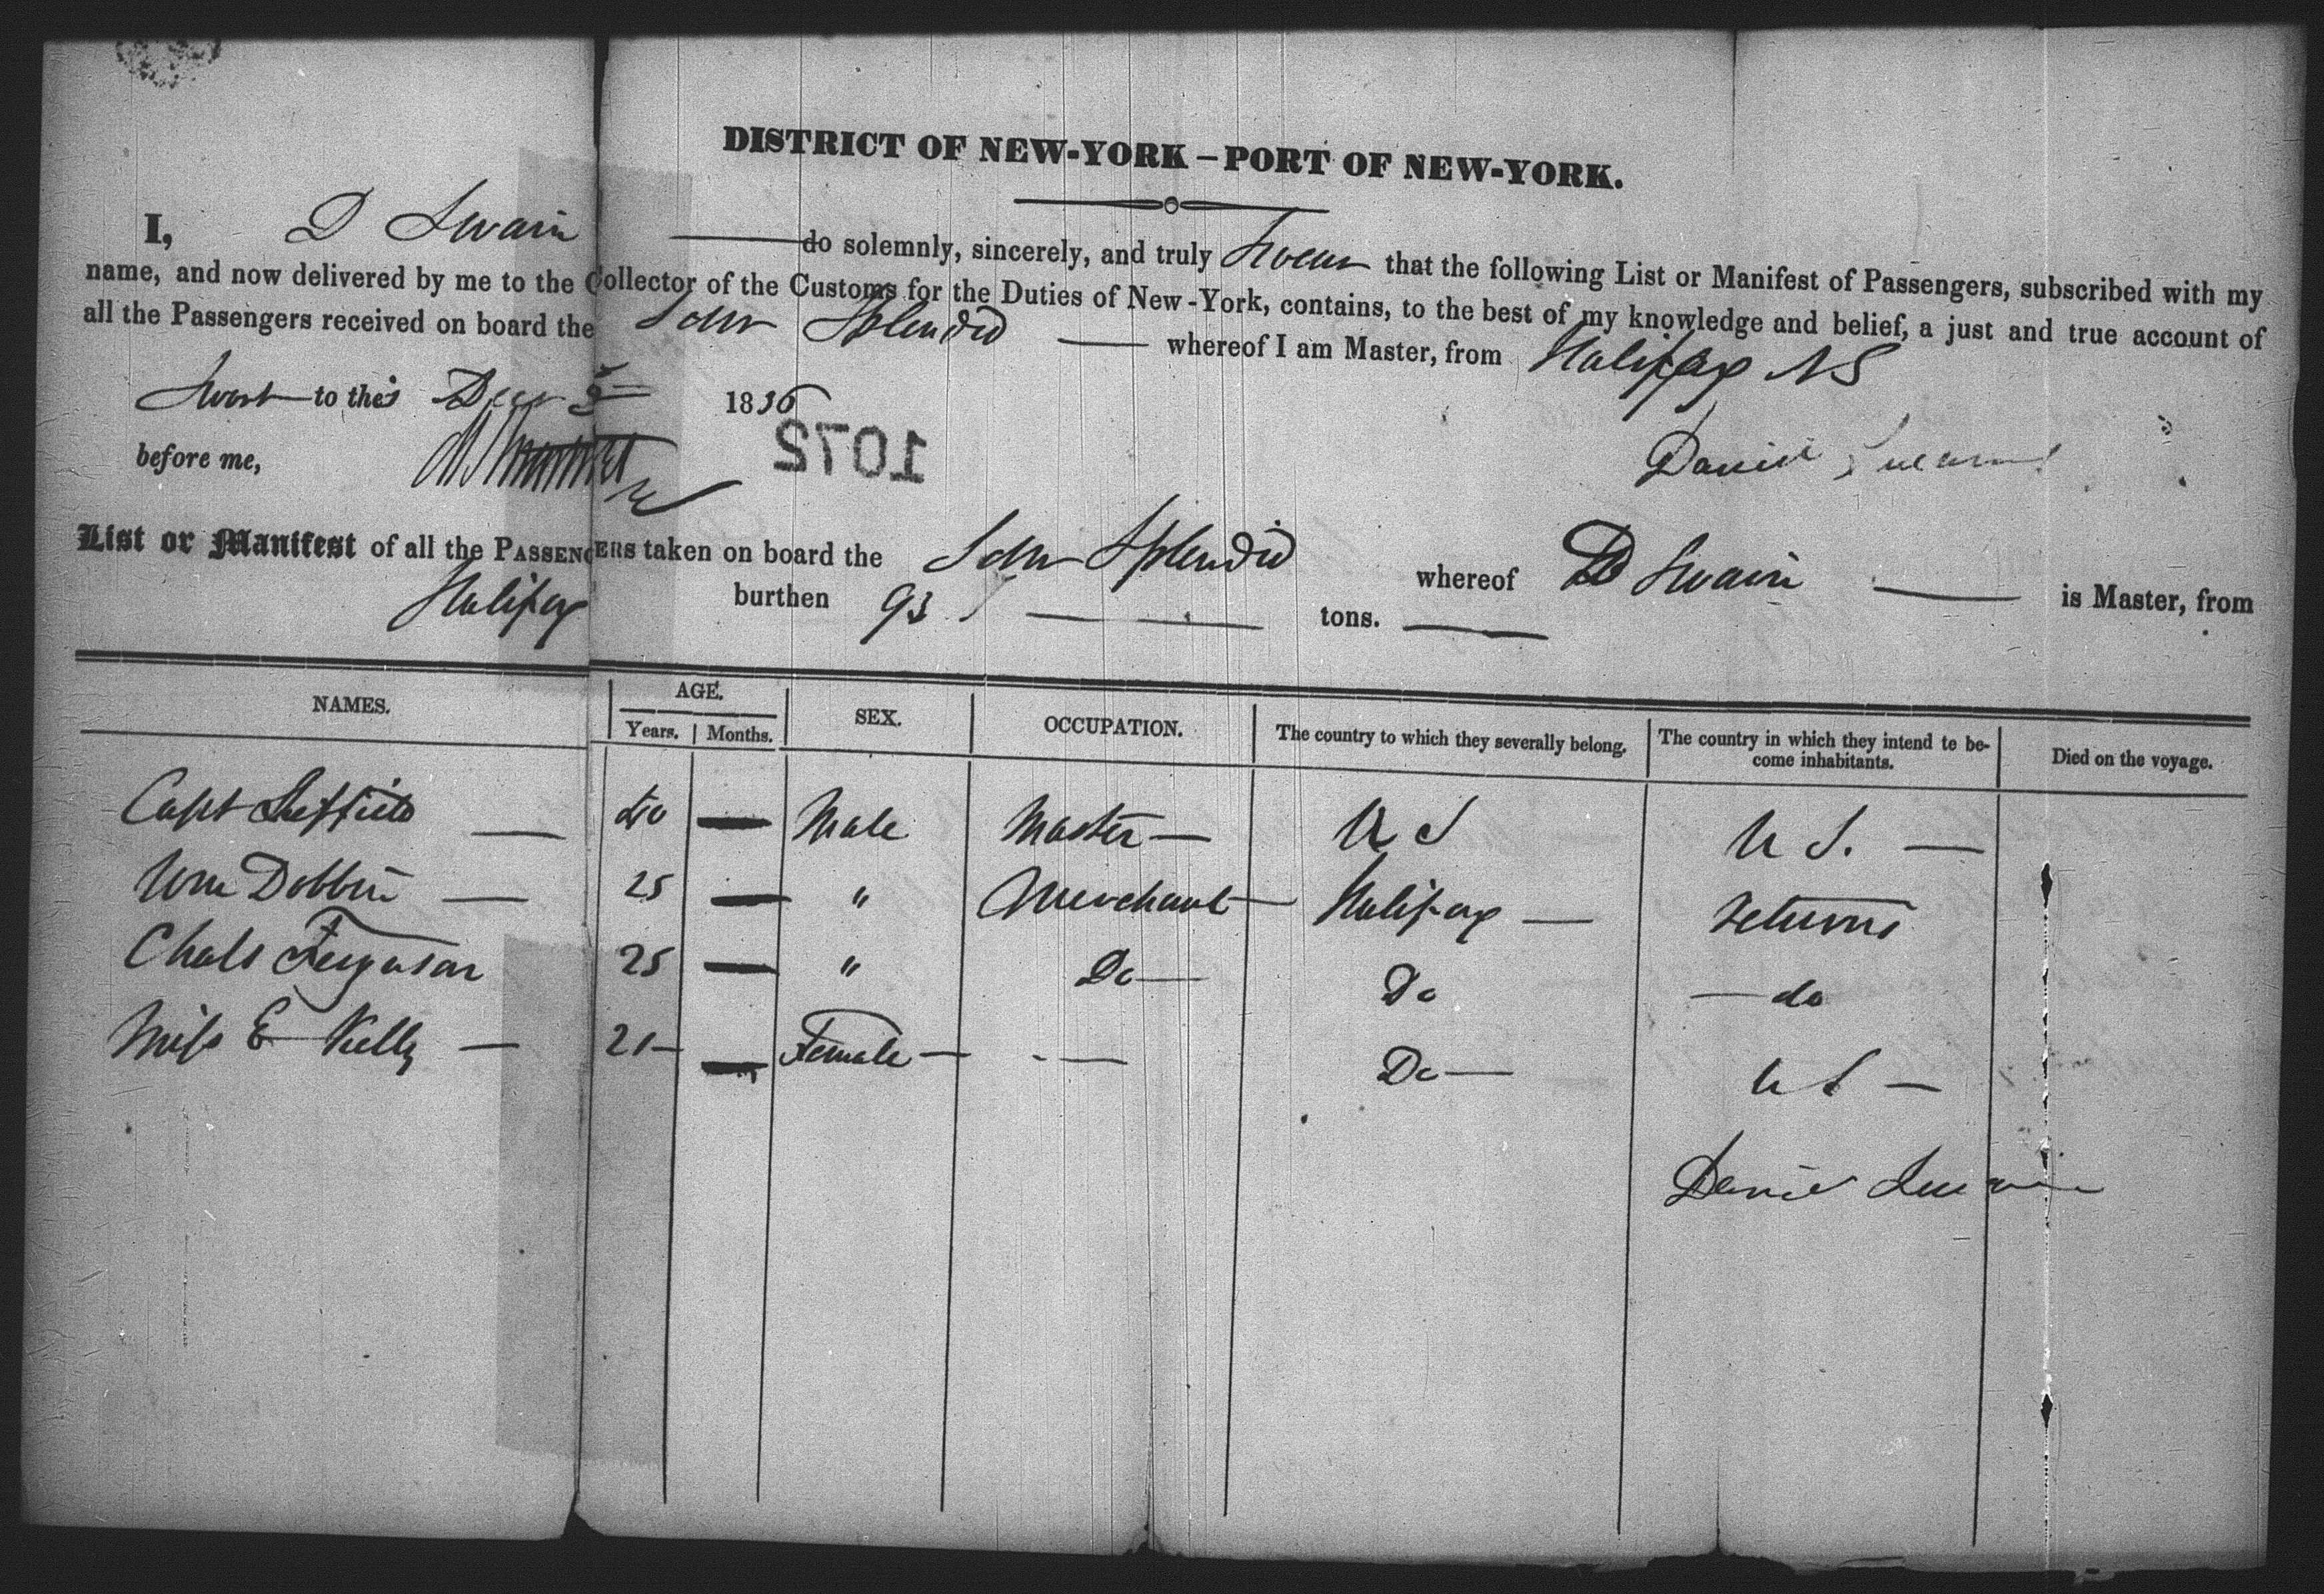 DISTRICT OF NEW-YORK – PORT OF NEW-YORK.
I, D Swain do solemnly, sincerely, and truly Swear that the following List or Manifest of Passengers, subscribed with my
name, and now delivered by me to the Collector of the Customs for the Duties of New-York, contains, to the best of my knowledge and belief, a just and true account of
all the Passengers received on board the Schr Splendid — whereof I am Master, from Halifax NS
Sworn to this Decr 1836
1072
before me, Daniel Swain
List or Manifest of all the PASSENGERS taken on board the Schr Splendid whereof D Swain — is Master, from
Halifax burthen 93 tons.
NAMES. AGE. Years. Months. SEX. OCCUPATION. The country to which they severally belong. The country in which they intend to be-
come inhabitants. Died on the voyage.
Capt Sheffield — 40 — Male Master — U S U S. —
Wm Dobbin — 25 — " Merchant — Halifax — returns
Chals Ferguson 25 — " Do — Do — do
Miss E Kelly — 21 — Female — — Do — U S —
Daniel Swain